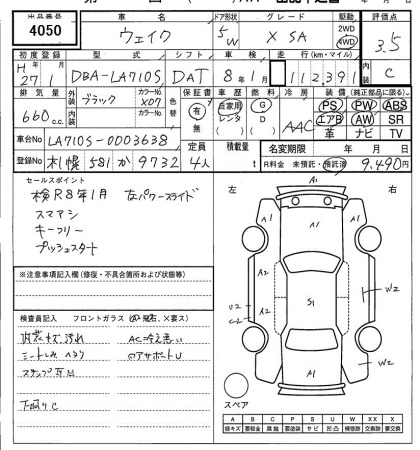 出品番号 車名 ドア形状 グレード 駆動 評価点
4050 ウェイク 5 W X SA 2WD 4WD 3.5
初度登録 型式 シフト 車検 走行(km・マイル) 内装
H27 1 DBA-LA710S DAT 8年1月 112,391 C
排気量 外装 ブラック カラーNo. X07 色替 保証書 車歴 燃料 冷房 装備(純正部品に限る)
660 c.c. 内装 カラーNo. 有 無 自家用 レンタ G D AAC PS PW ABS
エアB AW SR
革 ナビ TV
車台No LA710S-0003638 定員 積載量 名変期限 年 月 日
登録No 札幌 581 か 9732 4人 t R料金 未預託・預託済 9,490円
セールスポイント
検R8年1月 左パワースライド
スマアシ
キーフリー
プッシュスタート
左 右
A1
A1 A1 A1
A2
A2 S1 W2
U2
C2
W2
A1
スペア
※注意事項記入欄(修復・不具合箇所および状態等)
検査員記入 フロントガラス(
内装キズ汚れ AC冷え悪い
シートしみ へたり
下廻りC
A B C P S U W X XX ×
線キズ 要板金 腐蝕 要塗装 サビ 凹凸 補修跡 交換跡 要交換